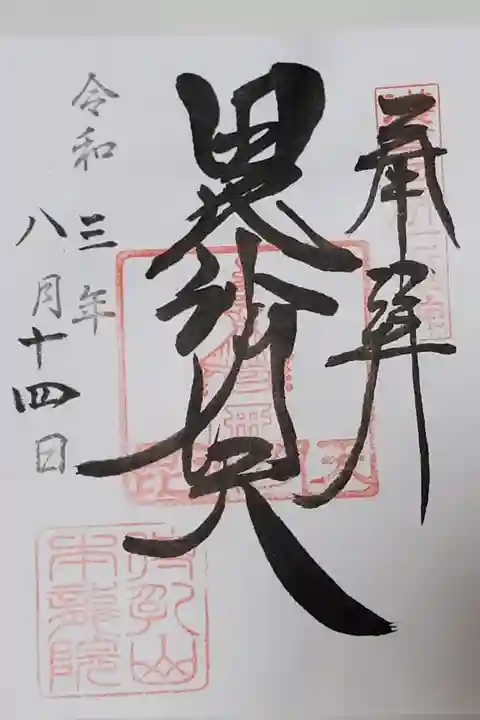 奉拝
毘沙門天
令和三年
八月十四日
待乳山
本龍院